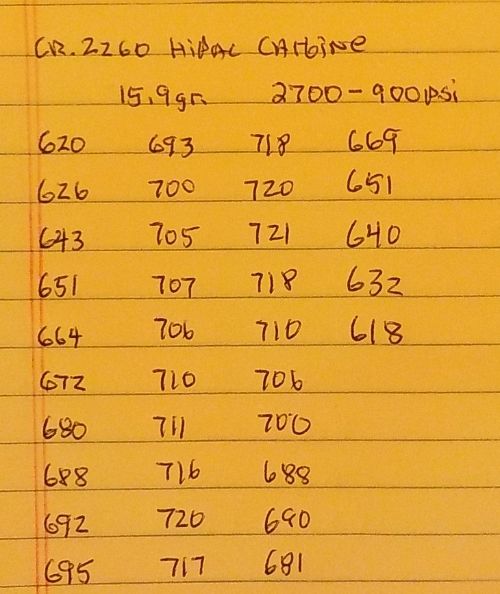 CR. 2260 HiPAC CARbiNe
15.9gr. 2700-900psi
620 693 718 669
626 700 720 651
643 705 721 640
651 707 718 632
664 706 710 618
672 710 706
680 711 700
688 716 688
692 720 690
695 717 681